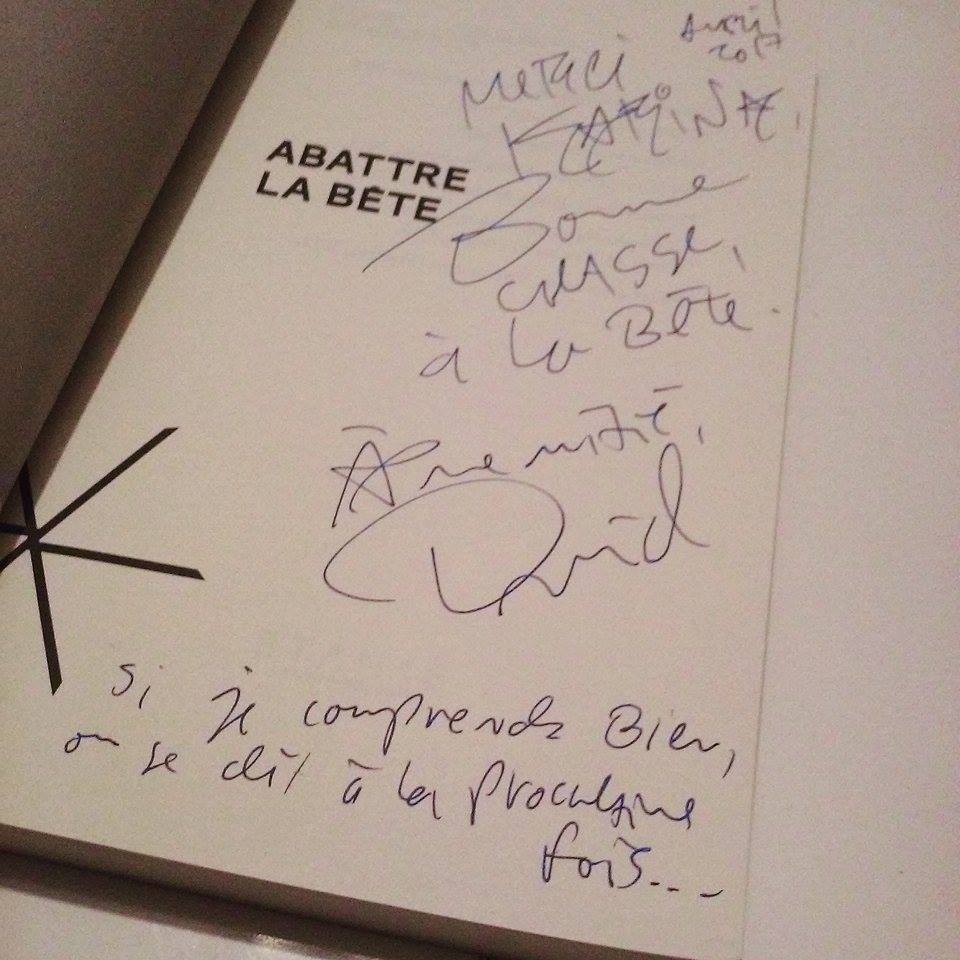 Avril
2017
Merci
KARINE,
ABATTRE
LA BÊTE
Bonne
chasse,
à la Bête.
Amitié,
David
Si je comprends Bien,
on se dit à la prochaine
fois...